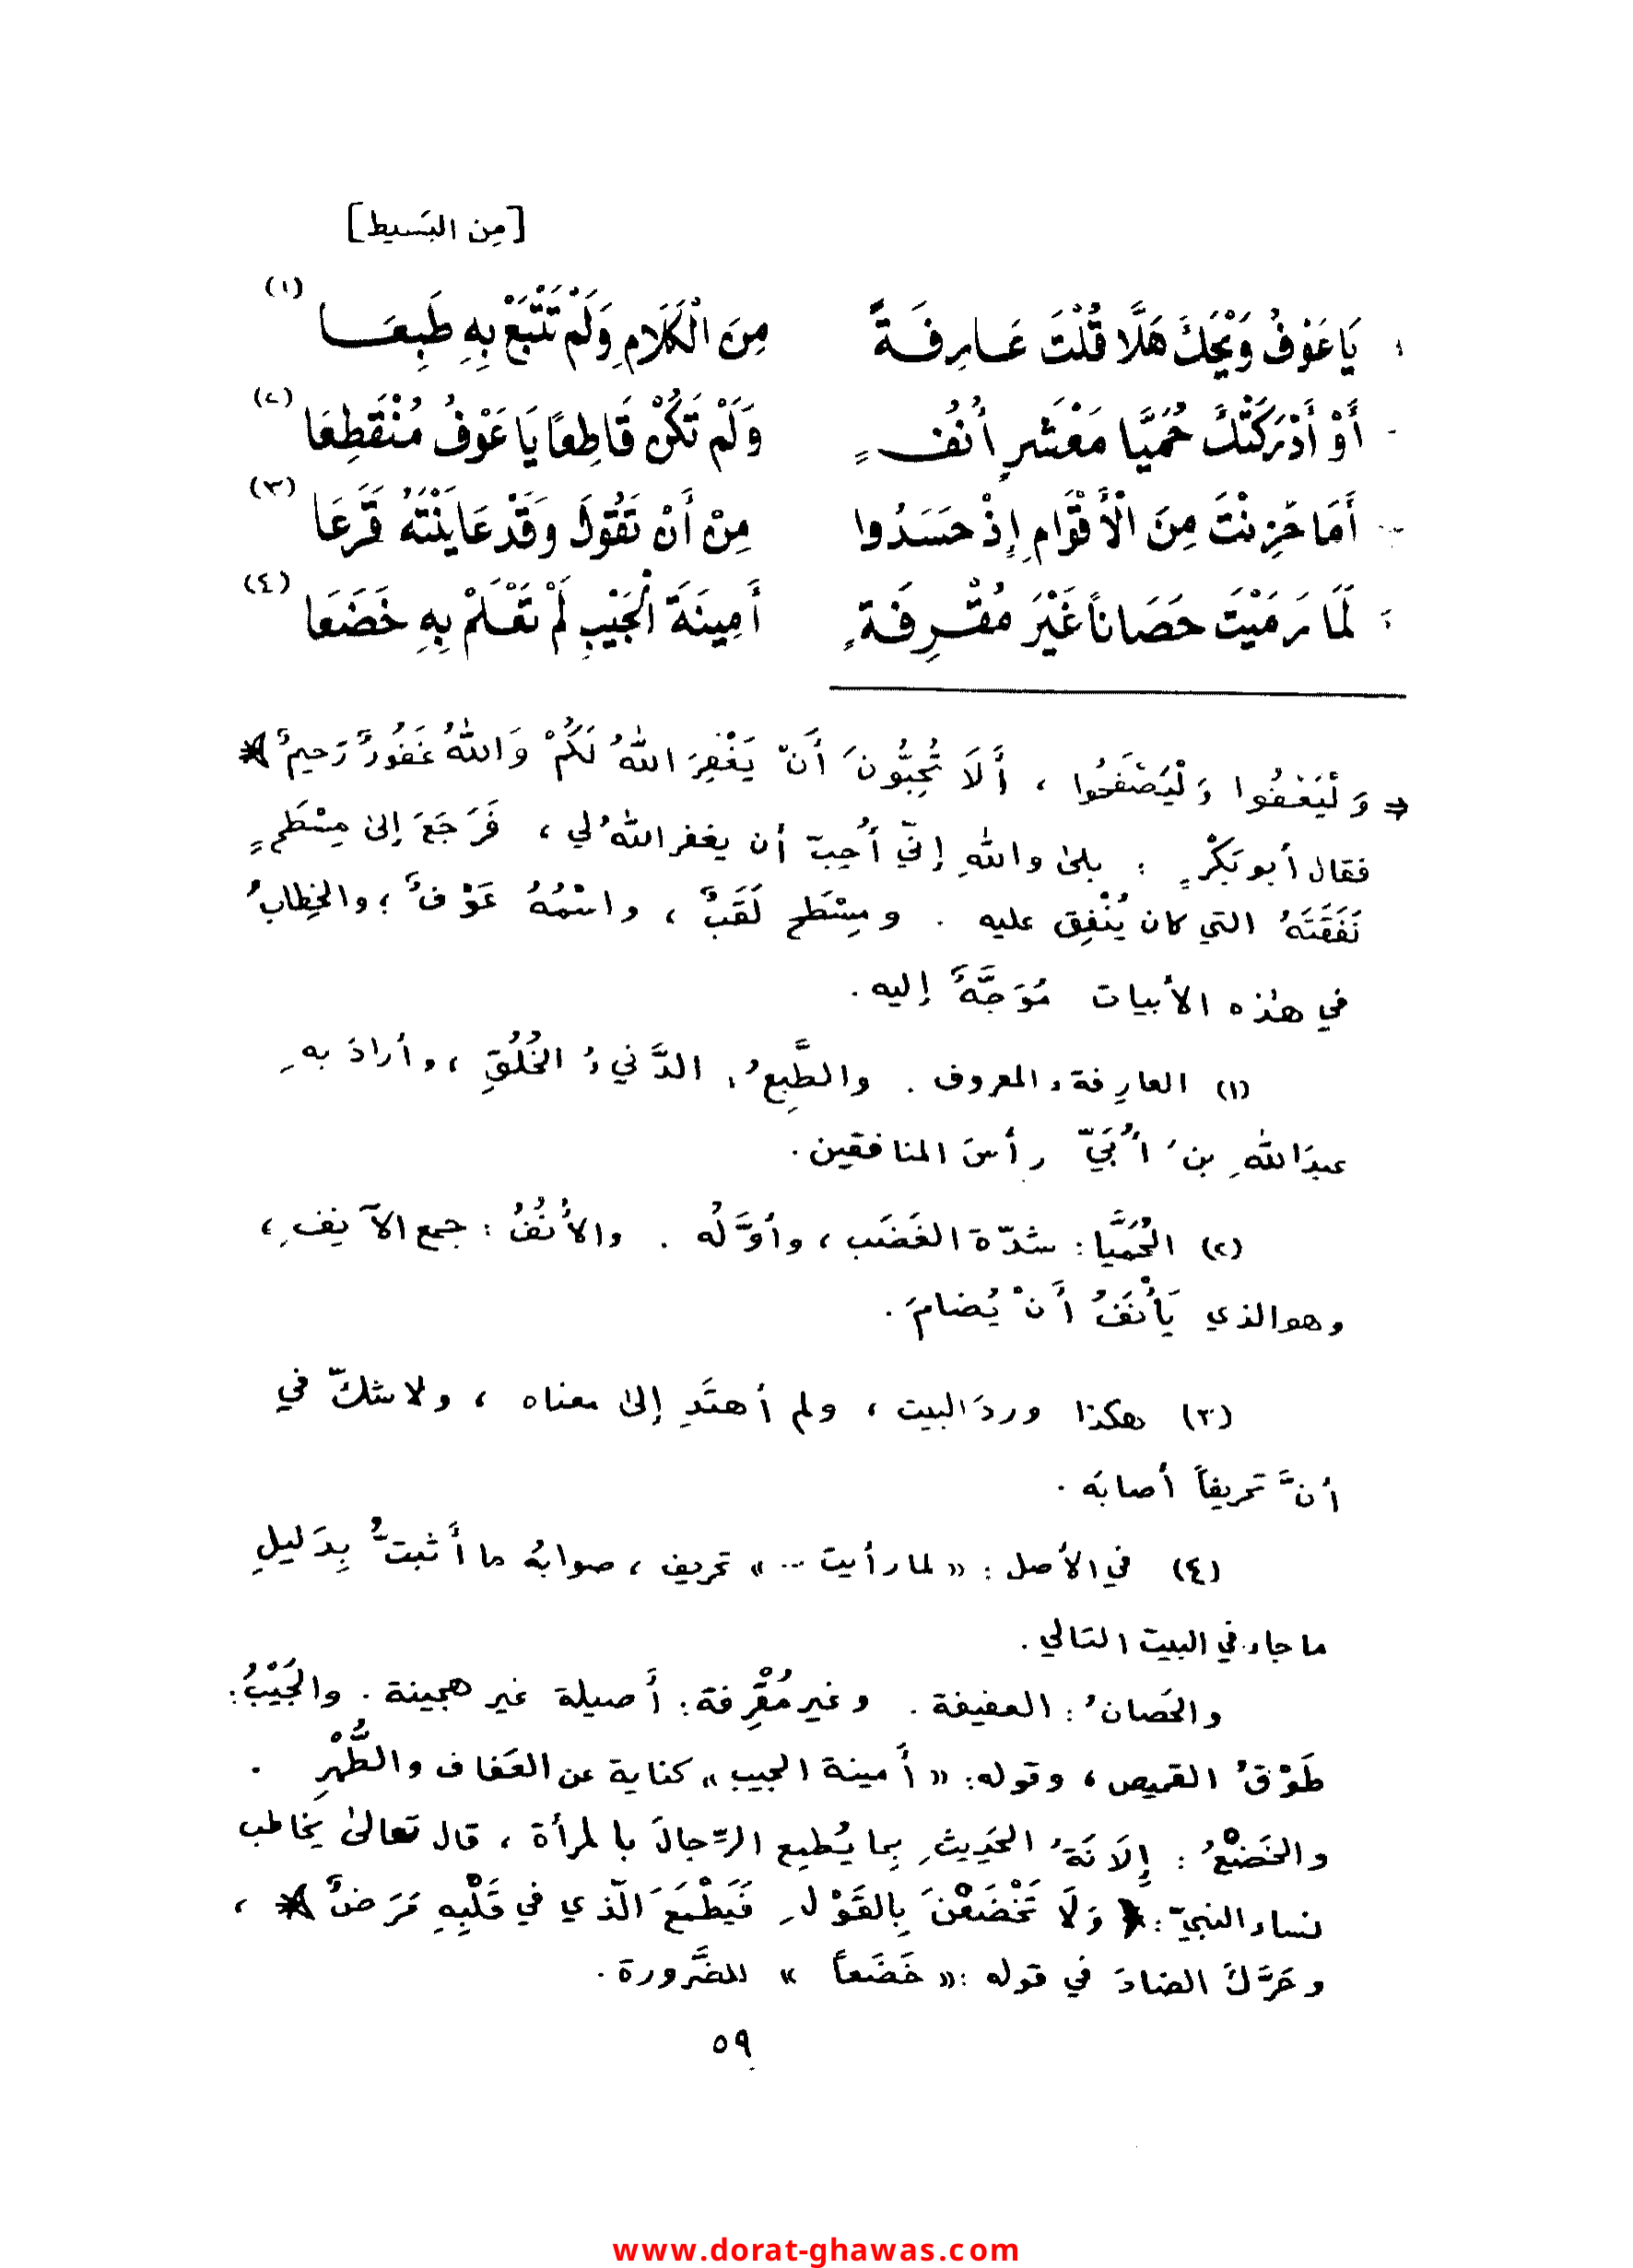 [مِن البَسيط]
١ يَا عَوْفُ وَيْحَكَ هَلَّا قُلْتَ عَارِفَةً مِنَ الْكَلَامِ وَلَمْ تَتْبَعْ بِهِ طَبِعَا (١)
أَوْ أَدْرَكَتْكَ حُمَيَّا مَعْشَرٍ أُنُفٍ وَلَمْ تَكُنْ قَاطِعًا يَا عَوْفُ مُنْقَطِعَا (٢)
أَمَا حَزِنْتَ مِنَ الْأَقْوَامِ إِذْ حَسَدُوا مِنْ أَنْ تَقُولَ وَقَدْ عَايَنْتَهُ قَزَعَا (٣)
لَمَّا رَمَيْتَ حَصَانًا غَيْرَ مُقْرِفَةٍ أَمِينَةَ الْجَيْبِ لَمْ تَعْلَمْ بِهِ خَضَعَا (٤)
= وَلْيَعْفُوا وَلْيَصْفَحُوا ، أَلَا تُحِبُّونَ أَنْ يَغْفِرَ اللهُ لَكُمْ وَاللهُ غَفُورٌ رَحيمٌ ﴾
فقال أبو بَكْرٍ : بلىٰ واللهِ إنّي أُحِبّ أن يغفر اللهُ لي ، فَرَجَعَ إلىٰ مِسْطَحٍ
نَفَقَتَهُ التي كان يُنْفِق عليه . ومِسْطَح لَقَبٌ ، واسْمُهُ عَوْفٌ ؛ والخِطابُ
في هٰذه الأبيات مُوَجَّهٌ إليه .
(١) العارِفة : المعروف . والطَّبِعُ : الدَّنيءُ الخُلُقِ ، وأرادَ بهِ
عبدَاللهِ بنُ أُبَيّ رأسَ المنافقين .
(٢) الحُمَيَّا : شدّة الغَضَب ، وأوَّلُه . والأُنُفُ : جمع الآنِفِ ،
وهو الذي يَأْنَفُ أَنْ يُضامَ .
(٣) هكذا وردَ البيت ، ولم أهتَدِ إلىٰ معناه ، ولا شكّ في
أنَّ تحريفاً أصابَه .
(٤) في الأصل : « لما رأيت ... » تحريف ، صوابُه ما أَثبتُّ بِدَليلِ
ما جاء في البيت التالي .
والحَصانُ : العفيفة . وغير مُقْرِفة : أَصيلة غير هجينة . والجَيْبُ :
طَوْقُ القميص ، وقوله : « أَمينة الجيب » كناية عن العَفاف والطُّهْرِ .
والخَضْعُ : إلَانَةُ الحَدِيثِ بِما يُطمِع الرِّجالَ بالمرأة ، قال تعالىٰ يخاطب
نساء النبيّ : ﴿ وَلَا تَخْضَعْنَ بِالقَوْلِ فَيَطْمَعَ الَّذي في قَلْبِهِ مَرَضٌ ﴾ ،
وحَرَّكَ الضادَ في قوله : « خَضَعاً » للضَّرورة .
٥٩
www.dorat-ghawas.com